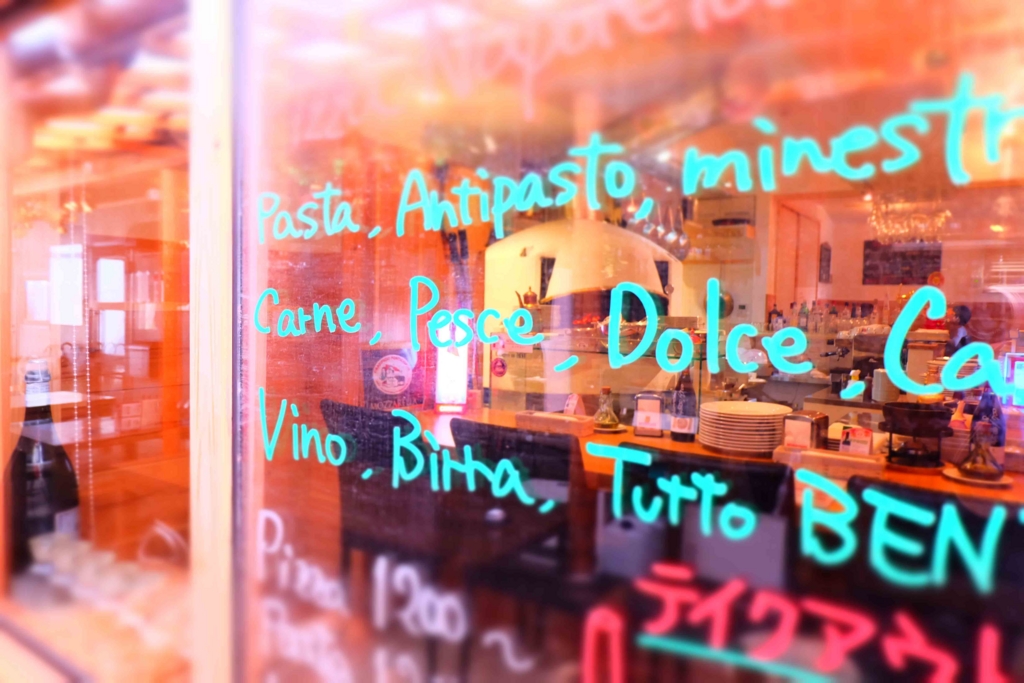 Napoletana
Pasta, Antipasto, minestr
Carne, Pesce, Dolce, Ca
Vino, Birra, Tutto BEN
Pizza 1200 ~
Pasta 12
テイクアウト